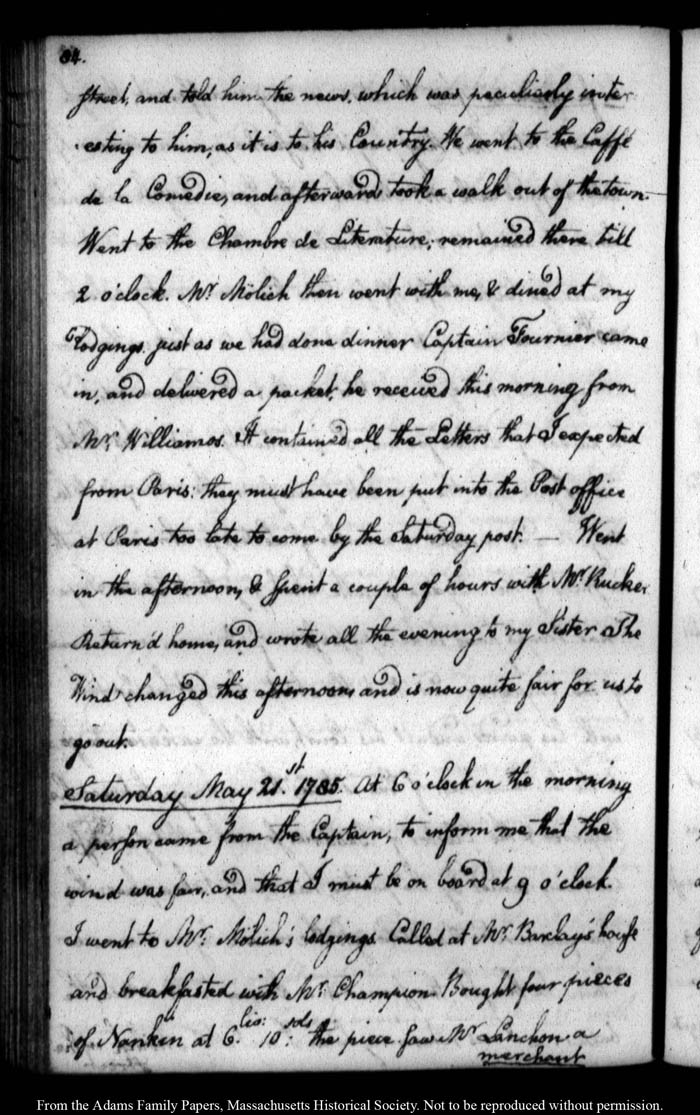 84.
street, and told him the news, which was peculiarly inter
esting to him, as it is to his Country. He went to the Caffé
de la Comedie, and afterwards took a walk out of the town.
Went to the Chambre de Literature; remained there till
2 o'clock. Mr. Mölich then went with me, & dined at my
Lodgings. just as we had done dinner Captain Fournier came
in, and delivered a packet, he received this morning from
Mr. Williamos. It contained all the Letters that I expected
from Paris: they must have been put into the Post office
at Paris too late to come by the Saturday post. — Went
in the afternoon, & spent a couple of hours with Mr. Rucker
Return'd home, and wrote all the evening to my Sister. The
Wind changed this afternoon, and is now quite fair for us to
go out.
Saturday May 21st. 1785. At 6 o'clock in the morning
a person came from the Captain, to inform me that the
wind was fair, and that I must be on board at 9 o'clock.
I went to Mr. Mölich's lodgings. Called at Mr. Barclay's house
and breakfasted with Mr. Champion. Bought four pieces
of Nankin at 6.liv: 10:sols the piece. saw Mr Lanchon a
merchant
From the Adams Family Papers, Massachusetts Historical Society. Not to be reproduced without permission.